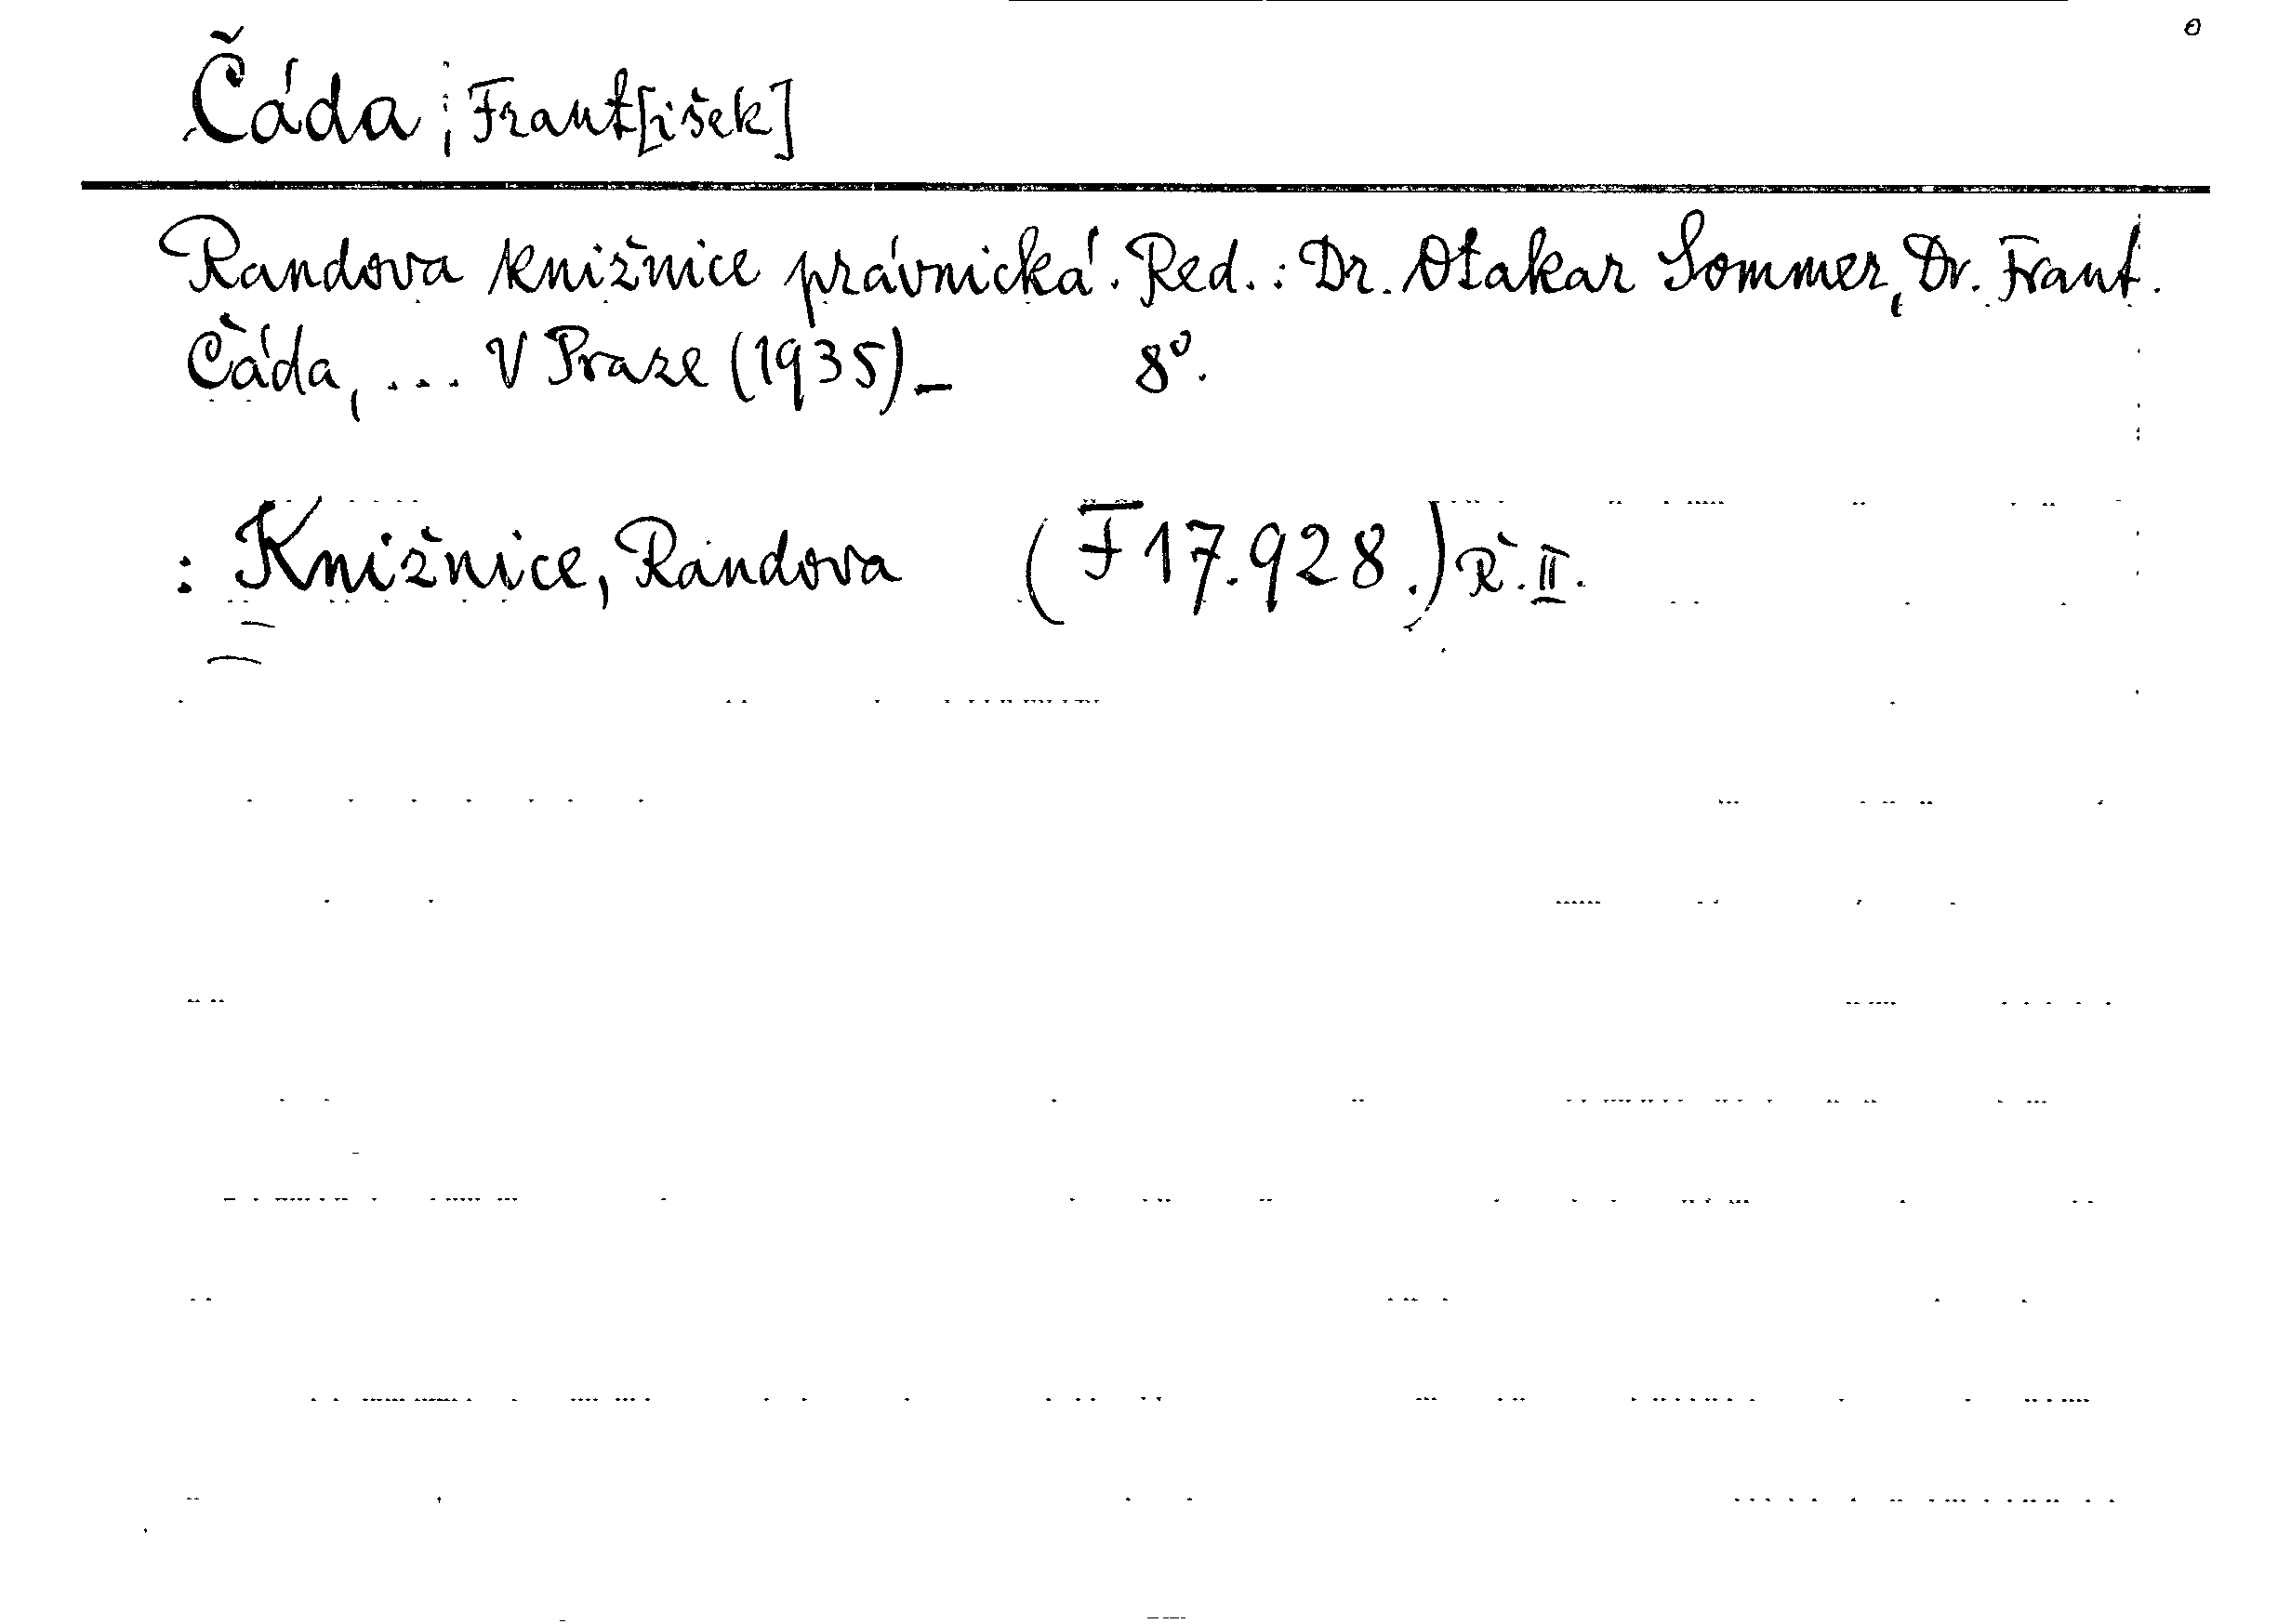 Čáda, Frant[išek]
Randova knižnice právnická. Red.: Dr. Otakar Sommer, Dr. Frant.
Čáda, ... V Praze (1935)– 8°.
: Knižnice, Randova (F 17.928.) Ř. II.